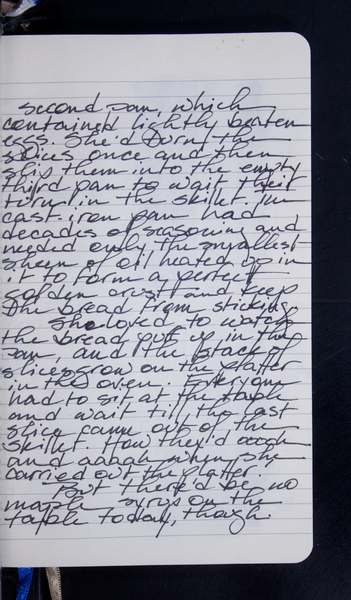 second pan, which
contained lightly beaten
eggs. She'd turn the
slices once and then
slip them into the empty
third pan to wait their
turn in the skillet. The
cast iron pan had
decades of seasoning and
needed only the smallest
sheen of oil heated up in
it to form a perfect
golden crust and keep
the bread from sticking.
She loved to watch
the bread puff up in the
pan, and the stack of
slices grow on the platter
in the oven. Everyone
had to sit at the table
and wait till the last
slice came out of the
skillet. How they'd oooh
and aaaah when she
carried out the platter.
But there'd be no
maple syrup on the
table today, though.